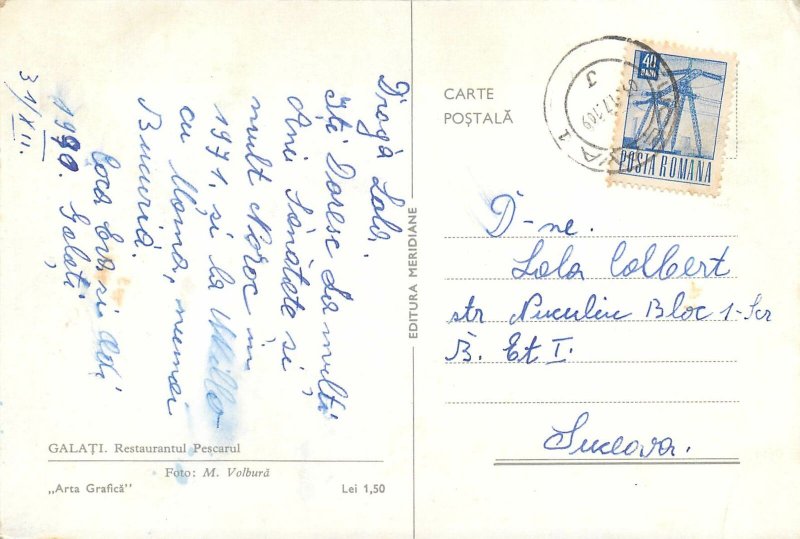 Dragă Lola.
Iți Doresc La mulți
Ani Sănătate si
mult Noroc in
1971. si la
cu Mama, numai
Bucuria.
Coca si Adi
1970. Galați
31/XII.
GALAȚI. Restaurantul Pescarul
Foto: M. Volbură
„Arta Grafică"
Lei 1,50
EDITURA MERIDIANE
CARTE
POȘTALĂ
40
BANI
POSTA ROMANA
D-ne.
Lola Colbert
str Bloc 1-Scr
B. Et I.
Suceava.